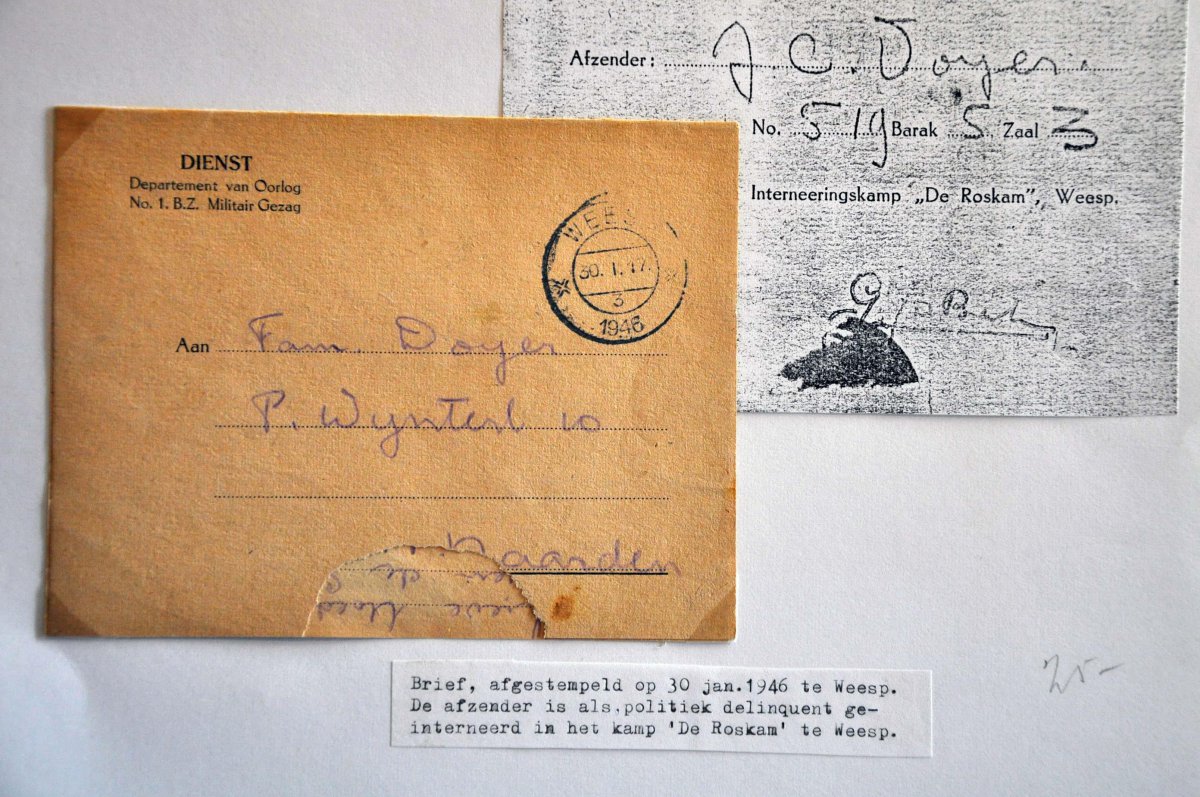 Afzender: J. C. Doyer.
No. 519 Barak 5 Zaal 3
Interneeringskamp „De Roskam”, Weesp.
DIENST
Departement van Oorlog
No. 1. B.Z. Militair Gezag
WEES
30. 1. 17.
3
1946
Aan Fam. Doyer
P. Wynterl 10
Naarden
de
Brief, afgestempeld op 30 jan.1946 te Weesp.
De afzender is als.politiek delinquent ge-
interneerd in het kamp 'De Roskam' te Weesp.
25-